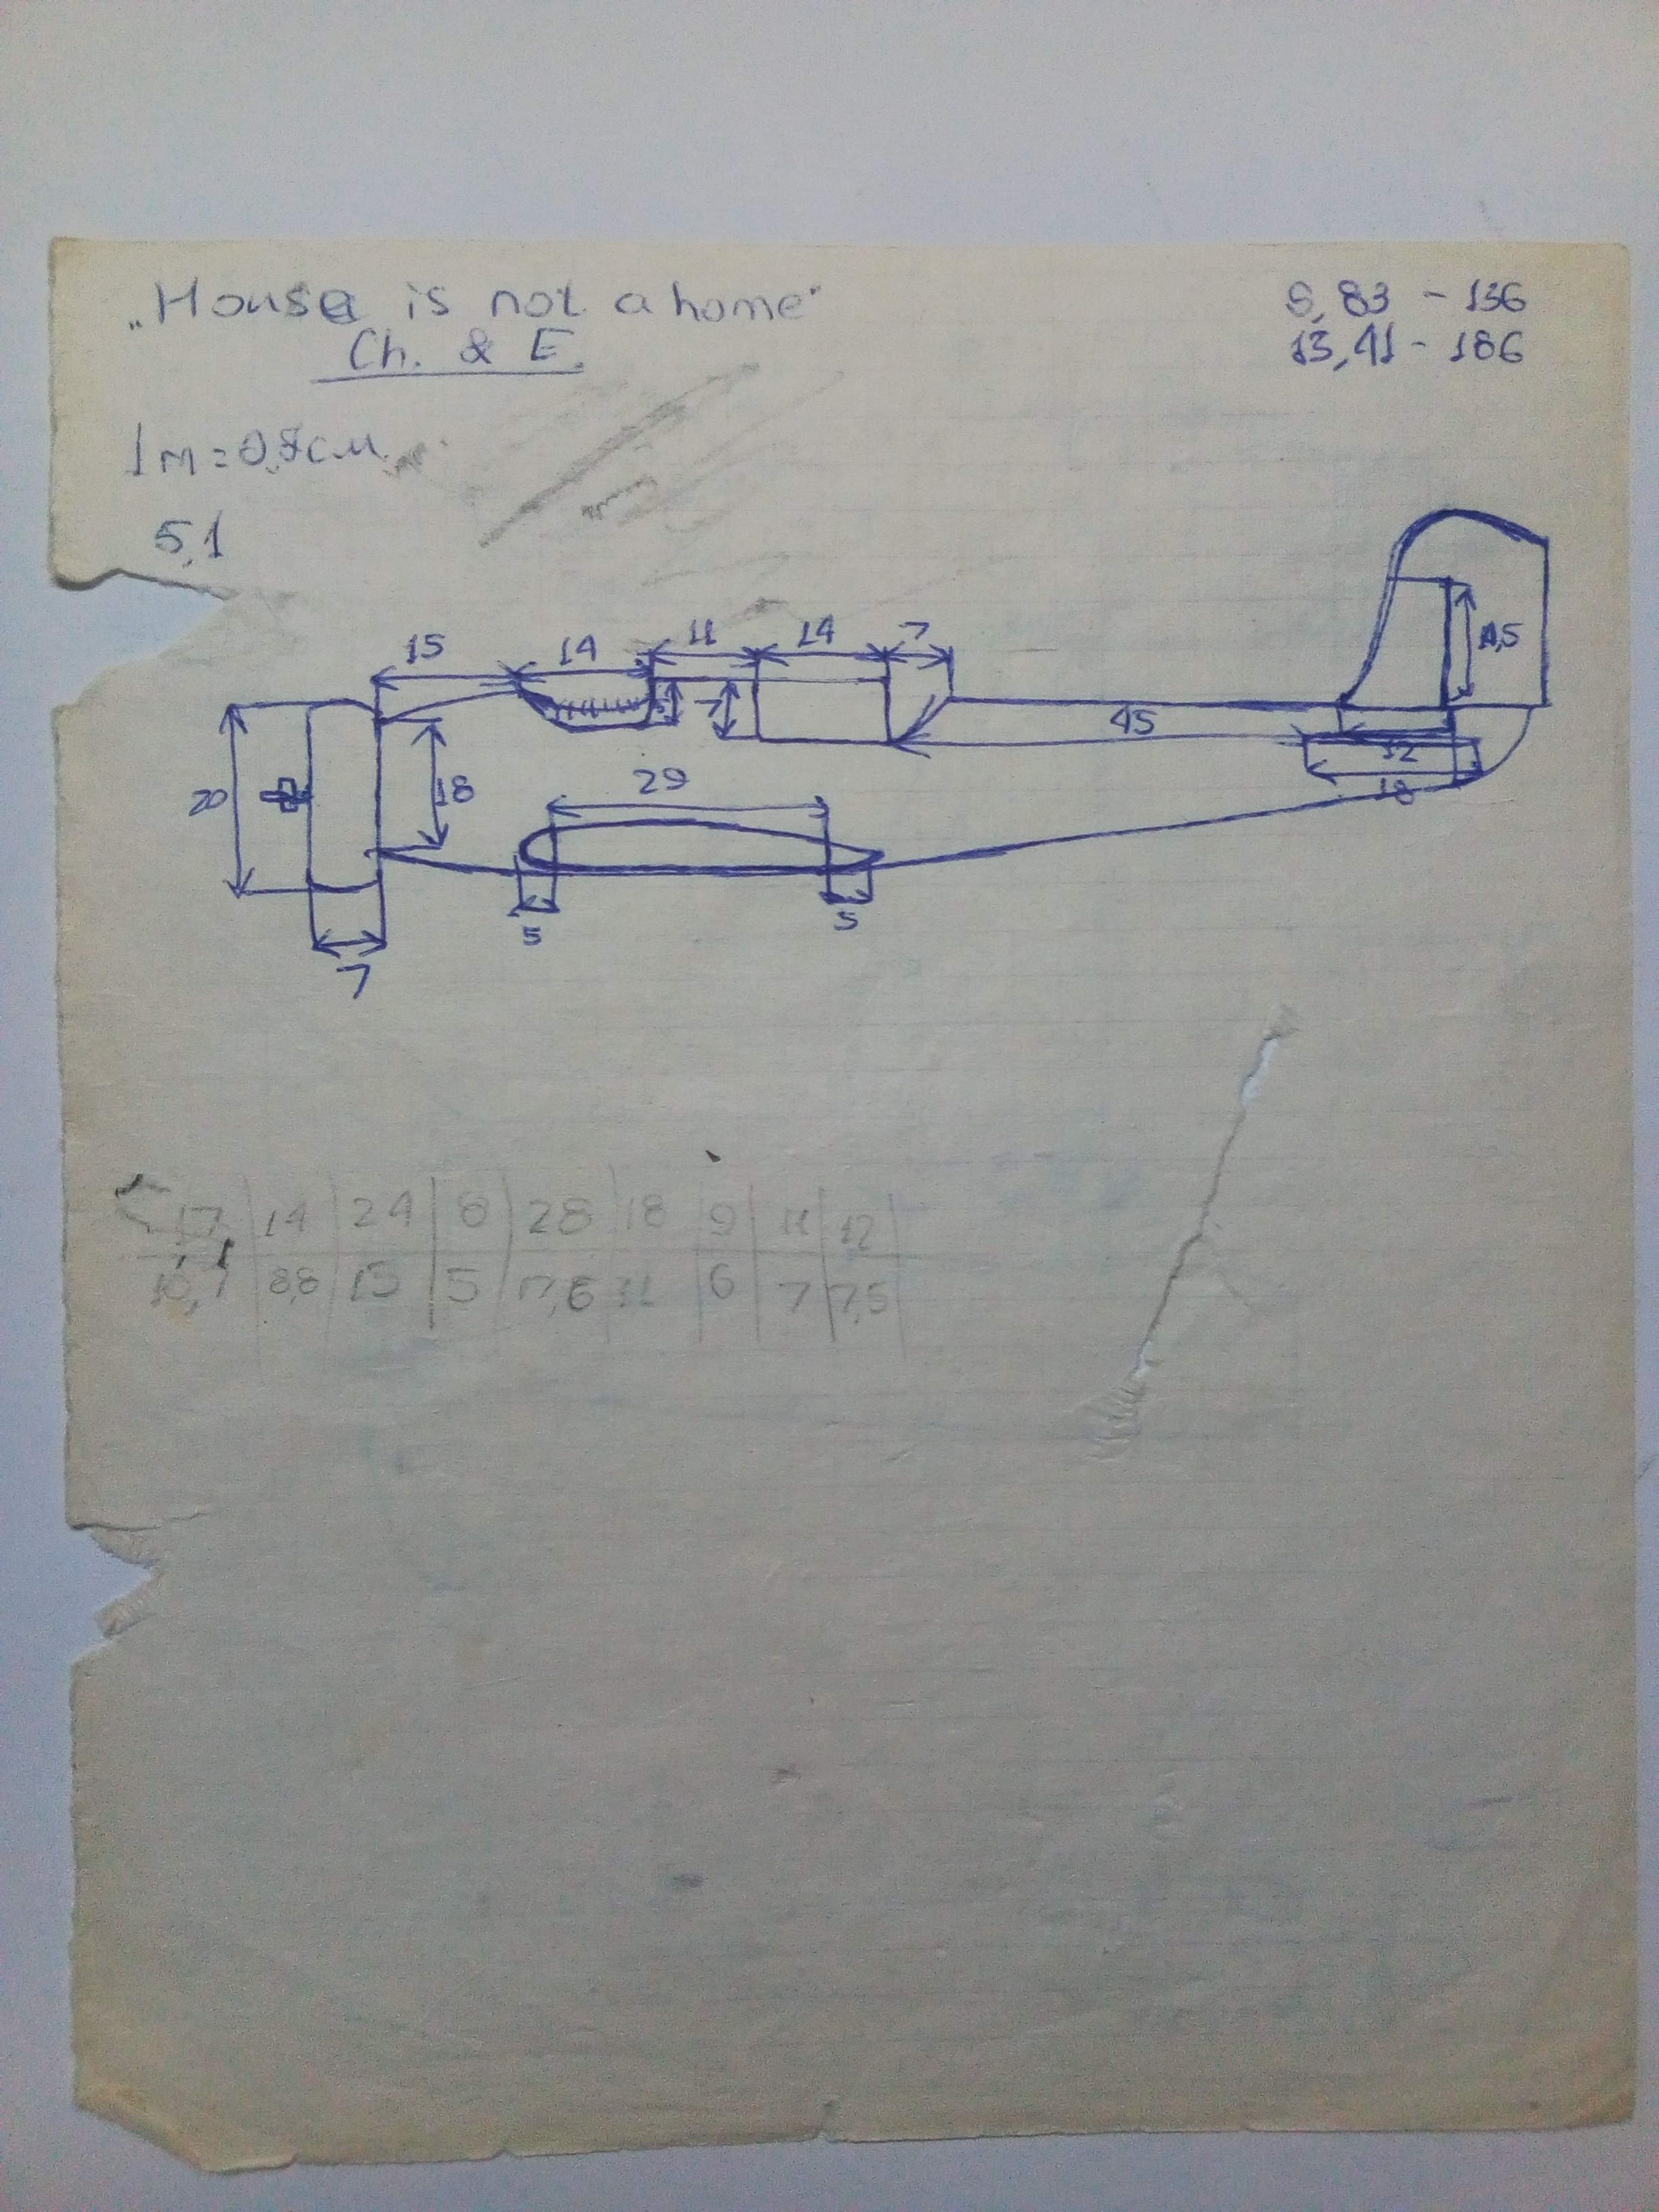 „House is not a home"
Ch. & E.
9,83 - 136
13,41 - 186
1m = 0,8см
5,1
15 14 11 14 7
14,5
7
45
12
18
20
18
29
5 5
7
17 14 24 8 28 18 9 11 12
10,7 8,8 15 5 17,6 11 6 7 7,5